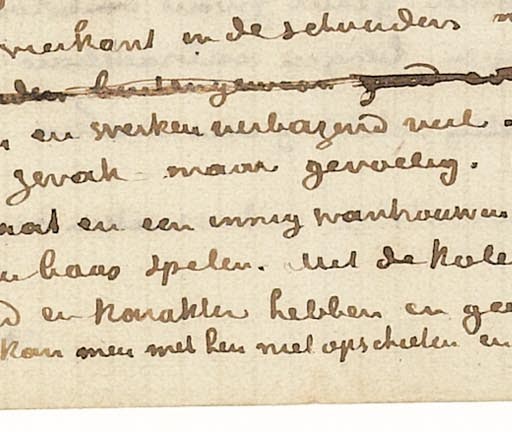 vierkant in de schouders
buitengewoon goed
en werken verbazend veel
zwak maar gevoelig.
en een innig vertrouwen
baas spelen. Met de kole
en karakter hebben en gee
kan men met hen niet opschieten en